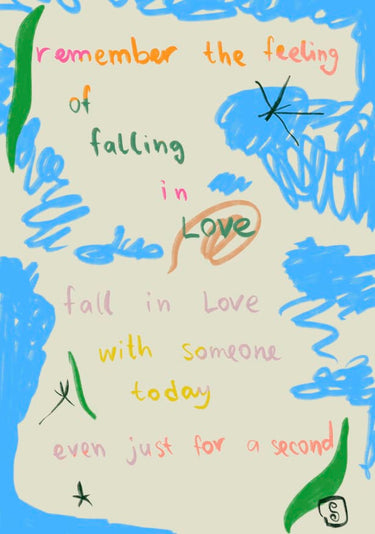 remember the feeling
of
falling
in
Love
fall in Love
with someone
today
even just for a second
S